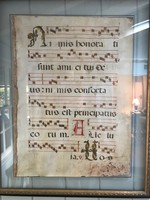 Nimis honora ti
sunt ami ci tu i De
us: ni mis conforta
tus est principatus
eo rum. Al le lu
ia.